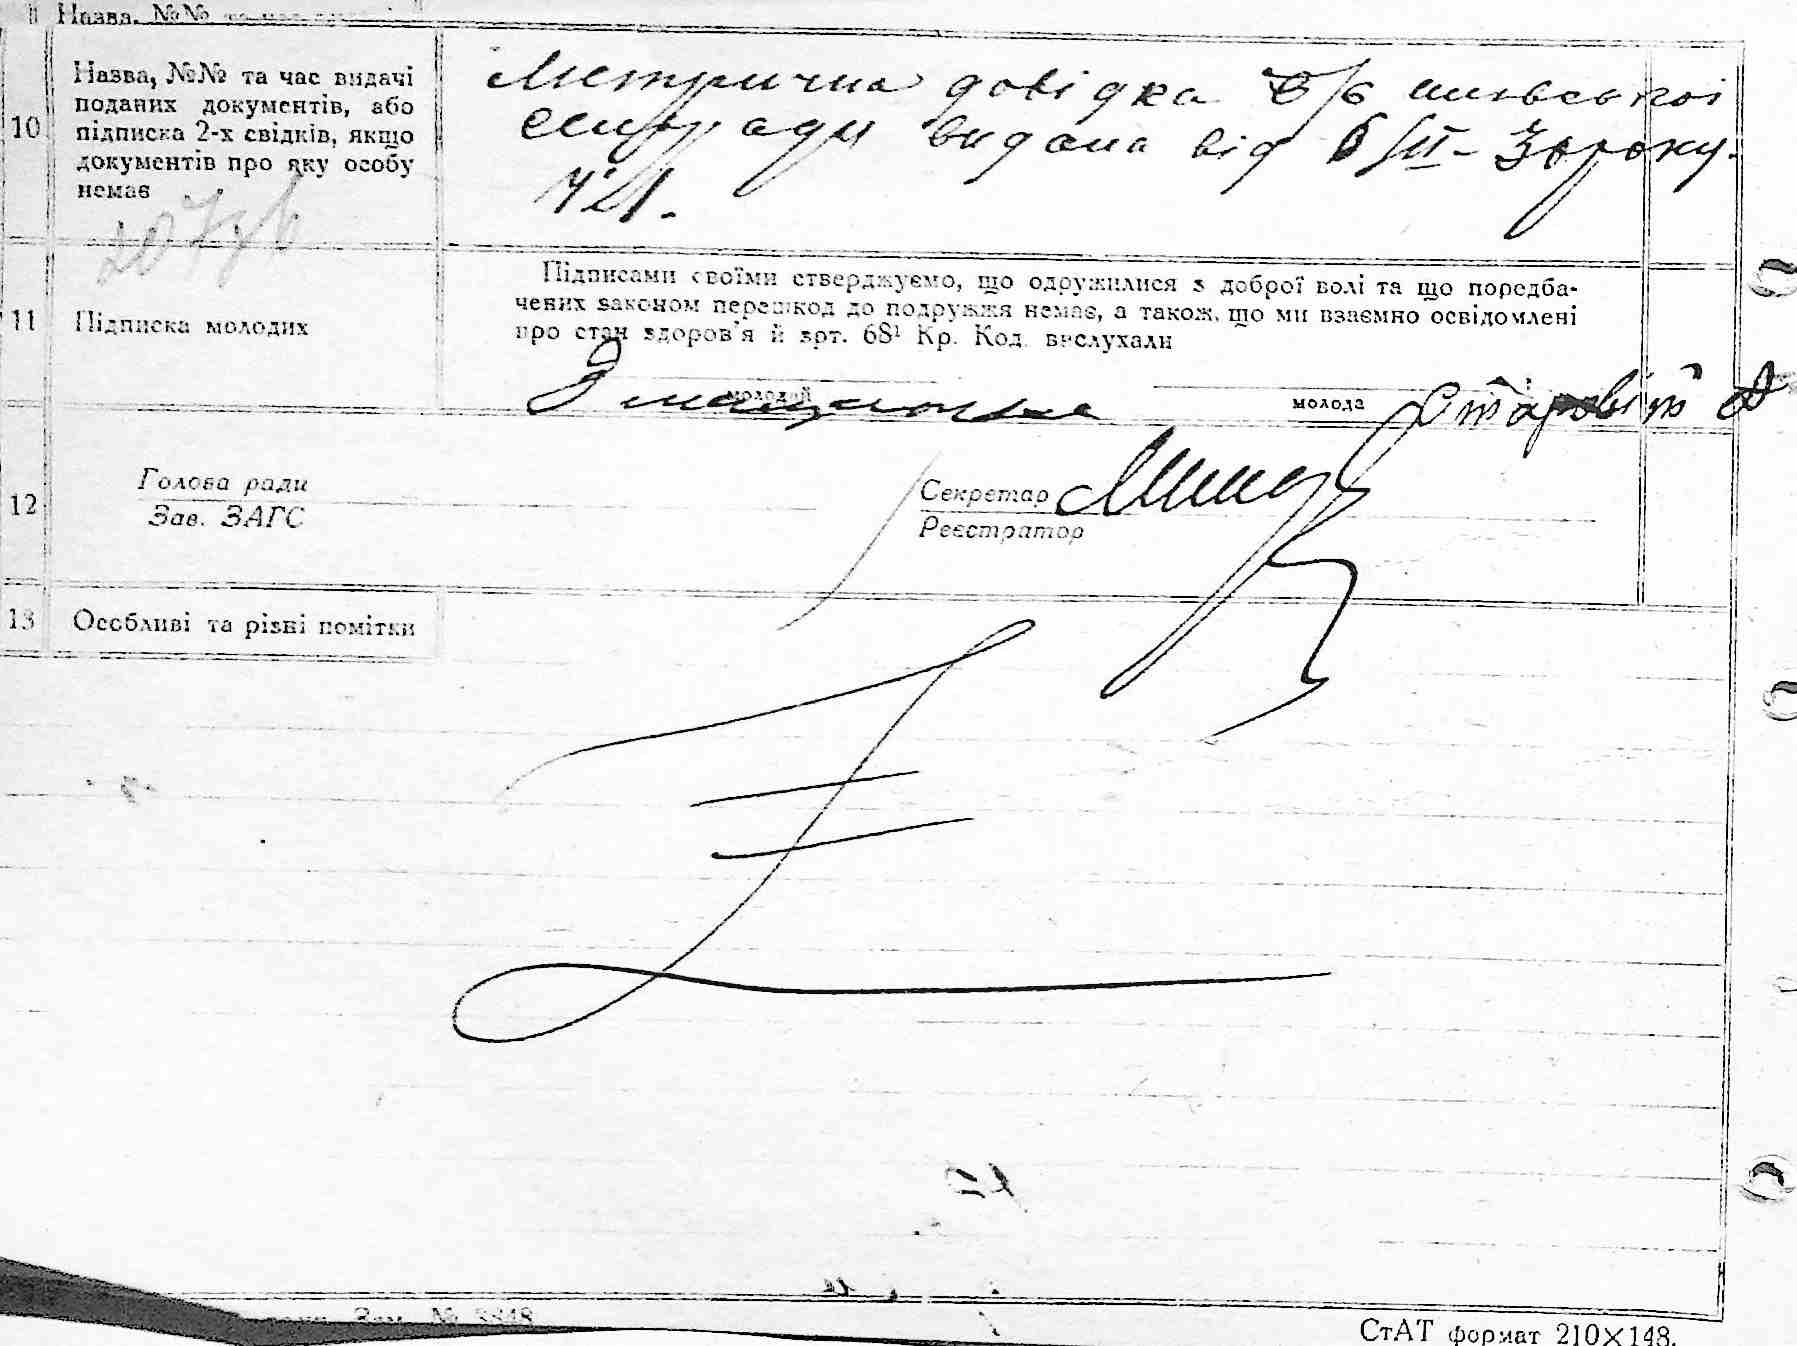 Назва, №№
10
Назва, №№ та час видачі
поданих документів, або
підписка 2-х свідків, якщо
документів про яку особу
немає
Метрична довідка
сільради видана від 6/III - 30 року.
11
Підписка молодих
Підписами своїми стверджуємо, що одружилися з доброї волі та що поредба-
чених законом перешкод до подружжя немає, а також, що ми взаємно освідомлені
про стан здоров'я й арт. 68¹ Кр. Код. вислухали
молодий
молода
Старовіт
12
Голова ради
Зав. ЗАГС
Секретар
Реєстратор
13
Особливі та різні помітки
Зам. № 3348
СтАТ формат 210×148.